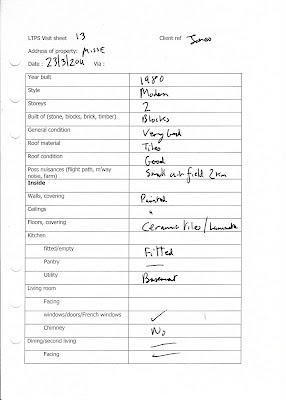 LTPS Visit sheet 13 Client ref Jones
Address of property: MISSE
Date : 23/3/2011 Via :
Year built 1980
Style Modern
Storeys 2
Built of (stone, blocks, brick, timber) Blocks
General condition Very Good
Roof material Tiles
Roof condition Good
Poss nuisances (flight path, m'way noise, farm) Small air field 2km
Inside
Walls, covering Painted
Ceilings "
Floors, covering Ceramic tiles/Laminate
Kitchen
fitted/empty Fitted
Pantry —
Utility Basement
Living room
Facing
windows/doors/French windows ✓
Chimney No
Dining/second living —
Facing —